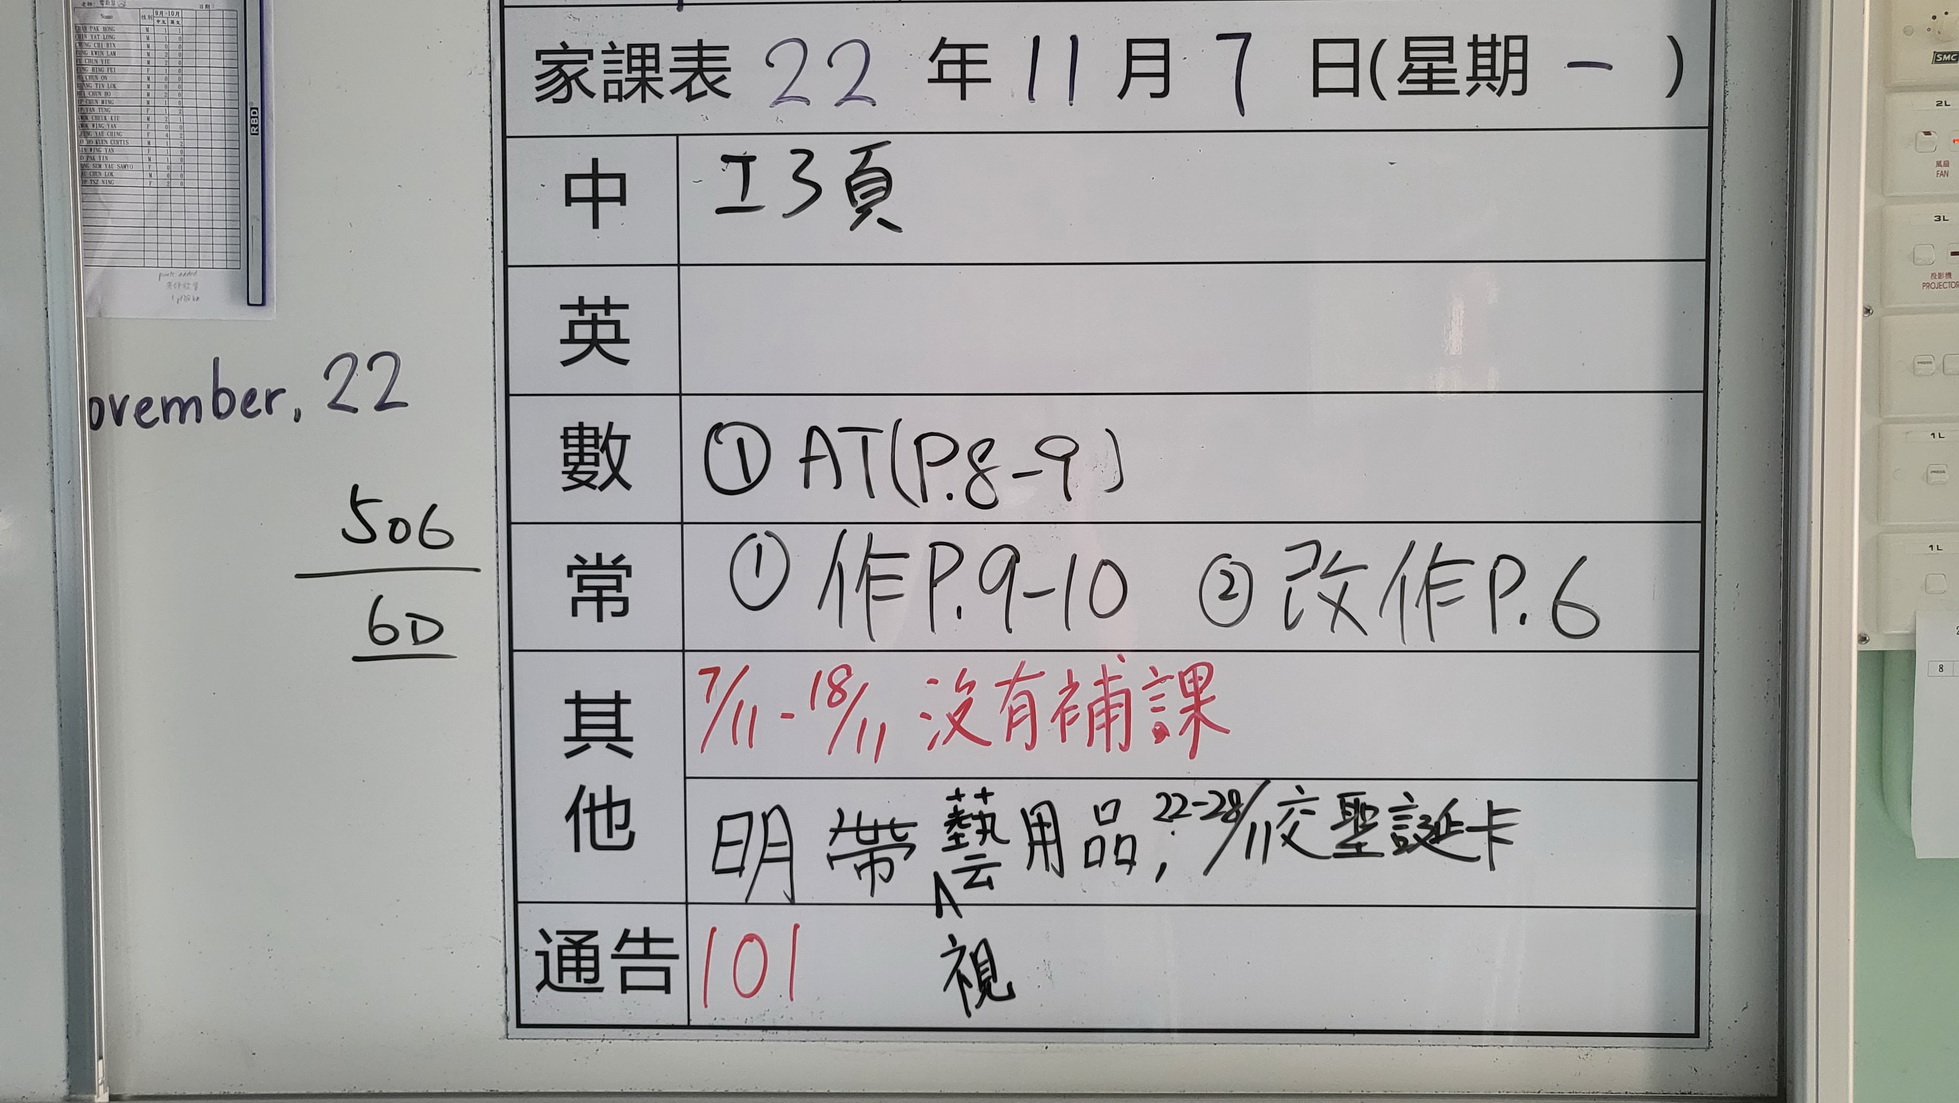 家課表 22 年 11 月 7 日(星期 一 )
中 工3頁
英
數 ① AT(P.8-9)
常 ① 作P.9-10 ② 改作P.6
其他 7/11 - 18/11 沒有補課
明帶視藝用品, 22-28/11交聖誕卡
通告 101
ovember, 22
506
6D
Name
RBD
SMC
2L
風扇
FAN
3L
投影機
PROJECTOR
1L
1L
8